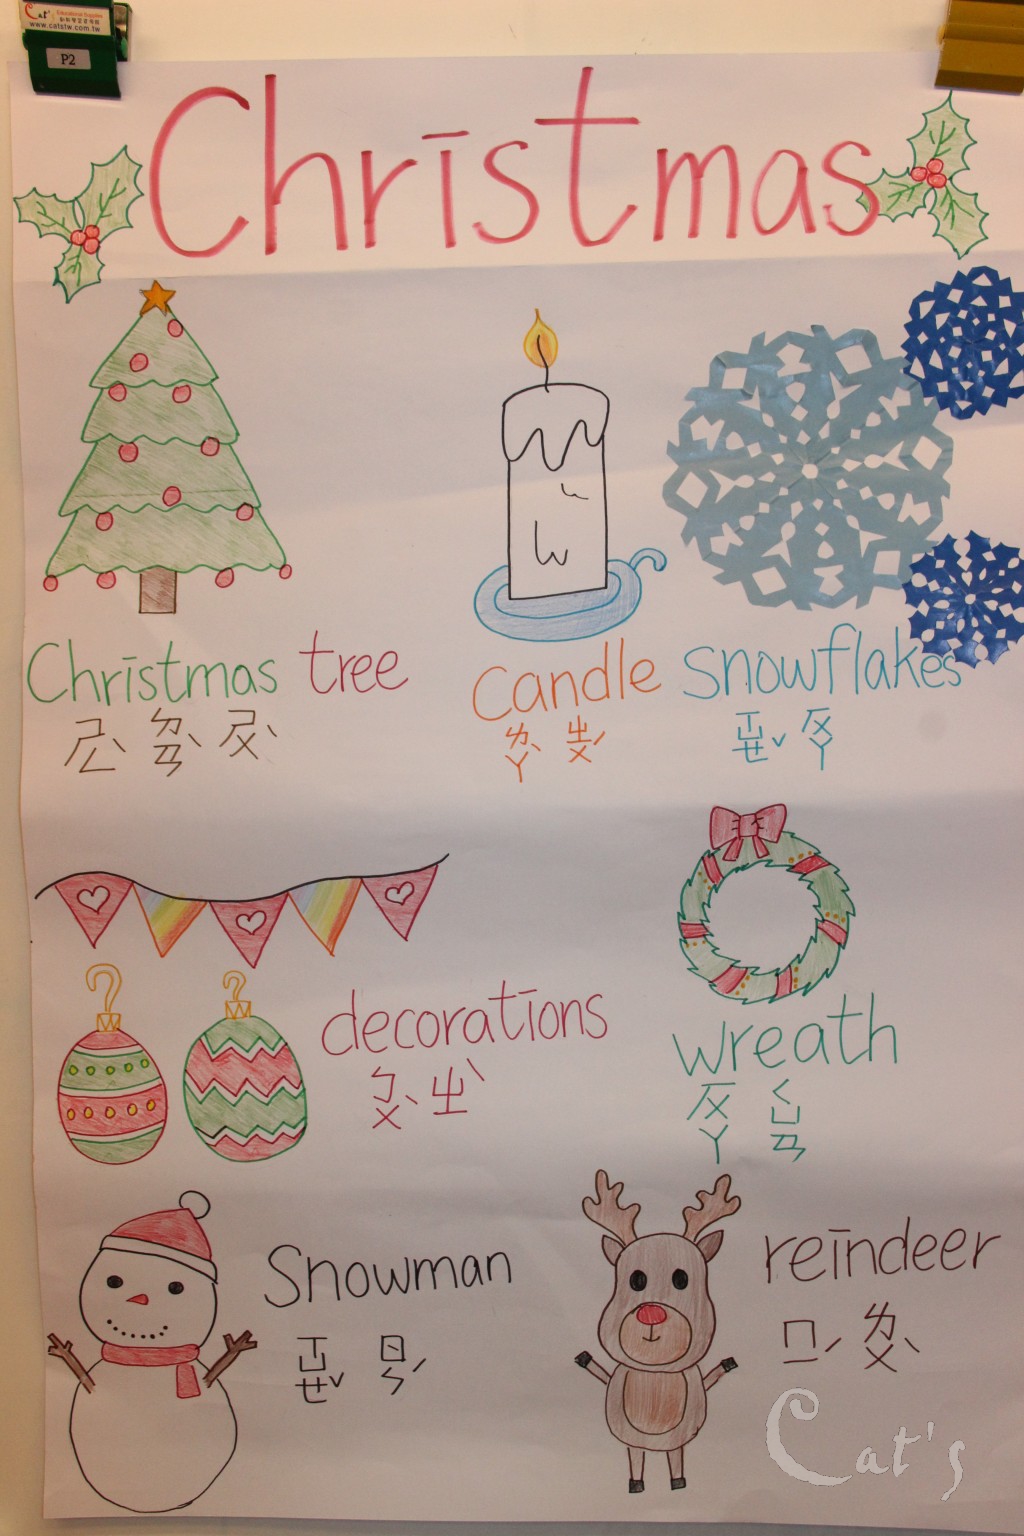 Cat's
www.catstw.com.tw
P2
Christmas
Christmas tree
ㄕㄥˋ ㄉㄢˋ ㄕㄨˋ
candle
ㄌㄚˋ ㄓㄨˊ
snowflakes
ㄒㄩㄝˇ ㄏㄨㄚ
decorations
ㄅㄨˋ ㄓˋ
wreath
ㄏㄨㄚ ㄑㄩㄢ
Snowman
ㄒㄩㄝˇ ㄖㄣˊ
reindeer
ㄇㄧˊ ㄌㄨˋ
Cat's